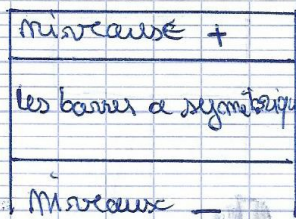 niveause +
les barres a symétriqu
niveaux _